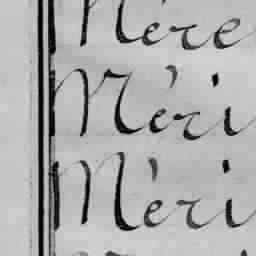 Mére
Méri
Méri